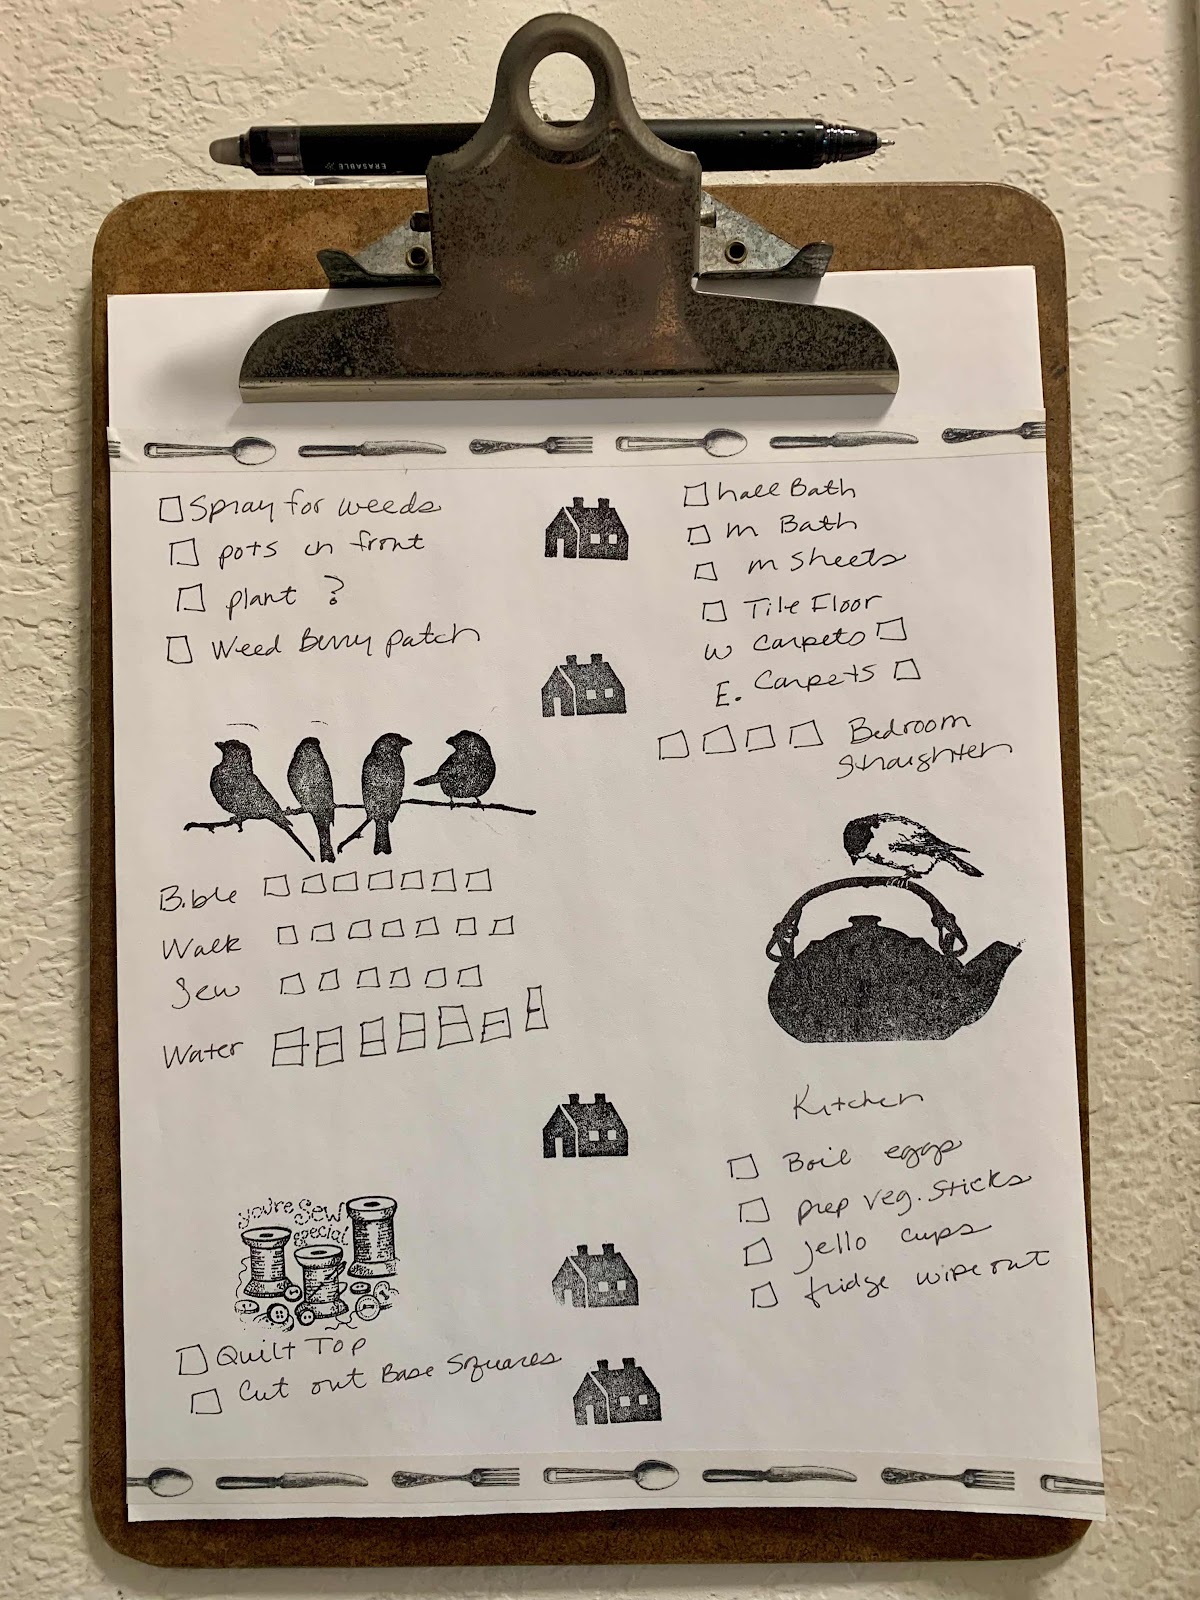 ERASABLE
Spray for weeds
pots in front
plant ?
Weed Berry patch
hall Bath
m Bath
m Sheets
Tile Floor
W Carpets
E. Carpets
Bedroom
straighten
Bible
Walk
Sew
Water
you're Sew
special
Quilt Top
Cut out Base Squares
Kitchen
Boil eggs
prep veg. sticks
jello cups
fridge wipe out